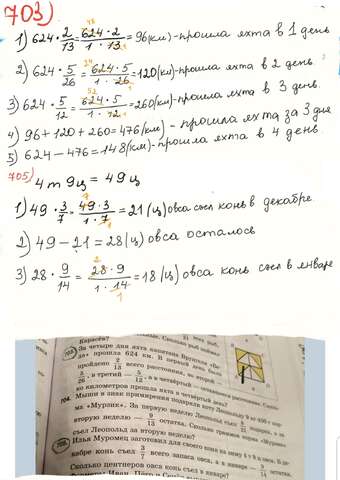 703)
1) 624 · 2/13 = 624 · 2 / 1 · 13 = 96 (км) - прошла яхта в 1 день
2) 624 · 5/26 = 624 · 5 / 1 · 26 = 120 (км) - прошла яхта в 2 день.
3) 624 · 5/12 = 624 · 5 / 1 · 12 = 260 (км) - прошла яхта в 3 день.
4) 96 + 120 + 260 = 476 (км) - прошла яхта за 3 дня
5) 624 - 476 = 148 (км) - прошла яхта в 4 день.
705)
4 т 9 ц = 49 ц
1) 49 · 3/7 = 49 · 3 / 1 · 7 = 21 (ц) овса съел конь в декабре
2) 49 - 21 = 28 (ц) овса осталось
3) 28 · 9/14 = 28 · 9 / 1 · 14 = 18 (ц) овса конь съел в январе
703. За четыре дня яхта капитана
да» прошла 624 км. В первый день
пройдено 2/13 всего расстояния, во второй —
5/26, в третий — 5/12, а в четвёртый — остальное расстояние. Сколь-
ко километров прошла яхта в четвёртый день?
704. Мыши в знак примирения подарили коту Леопольду
ма «Мурзик». За первую неделю Леопольд съел 8/21
вторую неделю — 9/13 остатка. Сколько граммов корма «Мурзик»
съел Леопольд за вторую неделю?
705. Илья Муромец заготовил для своего коня на зиму 4 т 9 ц овса. В де-
кабре конь съел 3/7 всего запаса овса, а в январе — 9/14 остатка.
Сколько центнеров овса конь съел в январе?